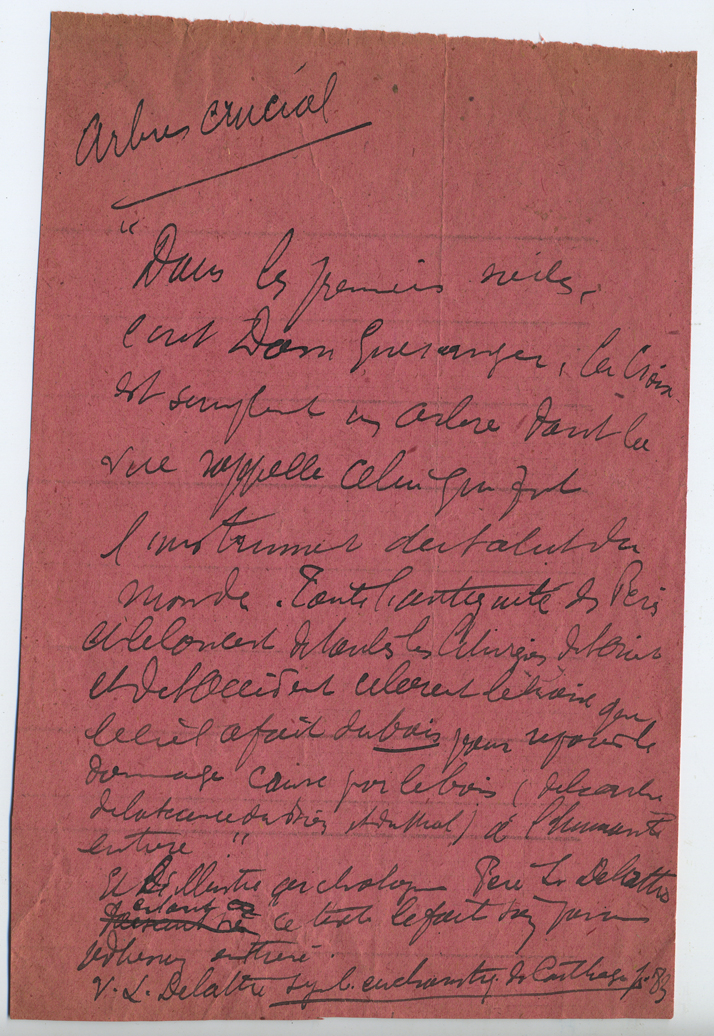 Arbre crucial
"Dans les premiers siècles,
écrit Dom Gueranger, la Croix
est simplement un arbre dont la
vue rappelle celui qui fut
l'instrument du salut du
monde. Toute l'antiquité des Pères
et le concert de toutes les Liturgies de l'Orient
et de l'Occident célèbrent le choix que
le ciel a fait du bois pour
dommage causé par le bois (de l'arbre
de la science du bien et du mal) à l'humanité
entière."
Et l'illustre archéologue Père L. Delattre
citant ce texte le fait par une
adhésion entière.
V. L. Delattre Symb. eucharistiq. de Carthage p. 83